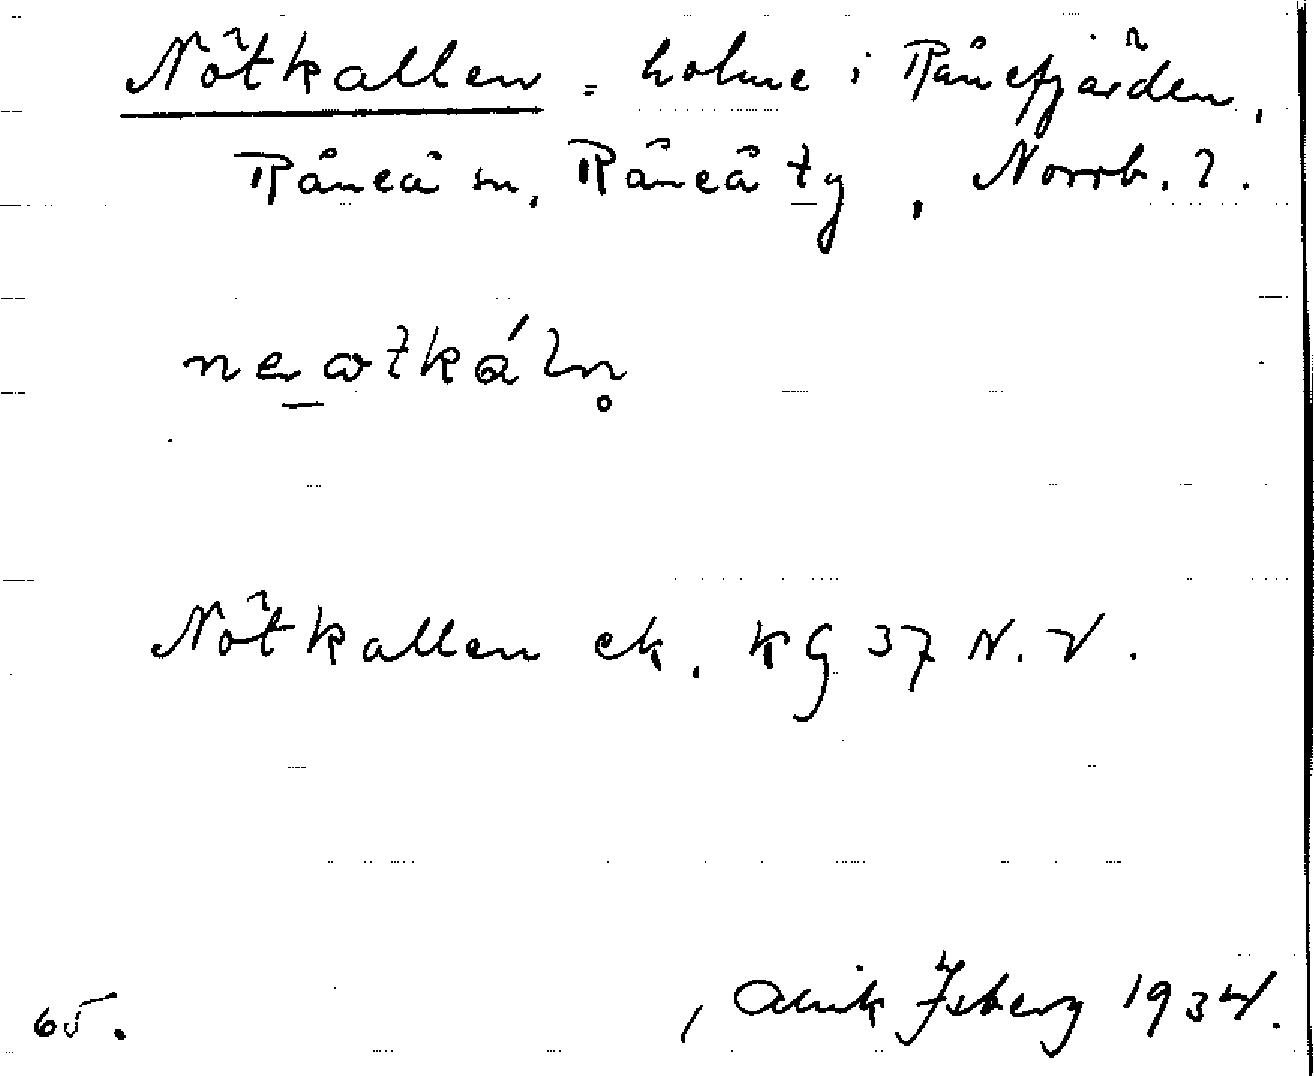 Nötkallen = holme i Rånefjärden,
Råneå sn, Råneå tg, Norrb. l.
Nötkallen ek. KG 37 N.V.
65. Alrik Isberg 1934.